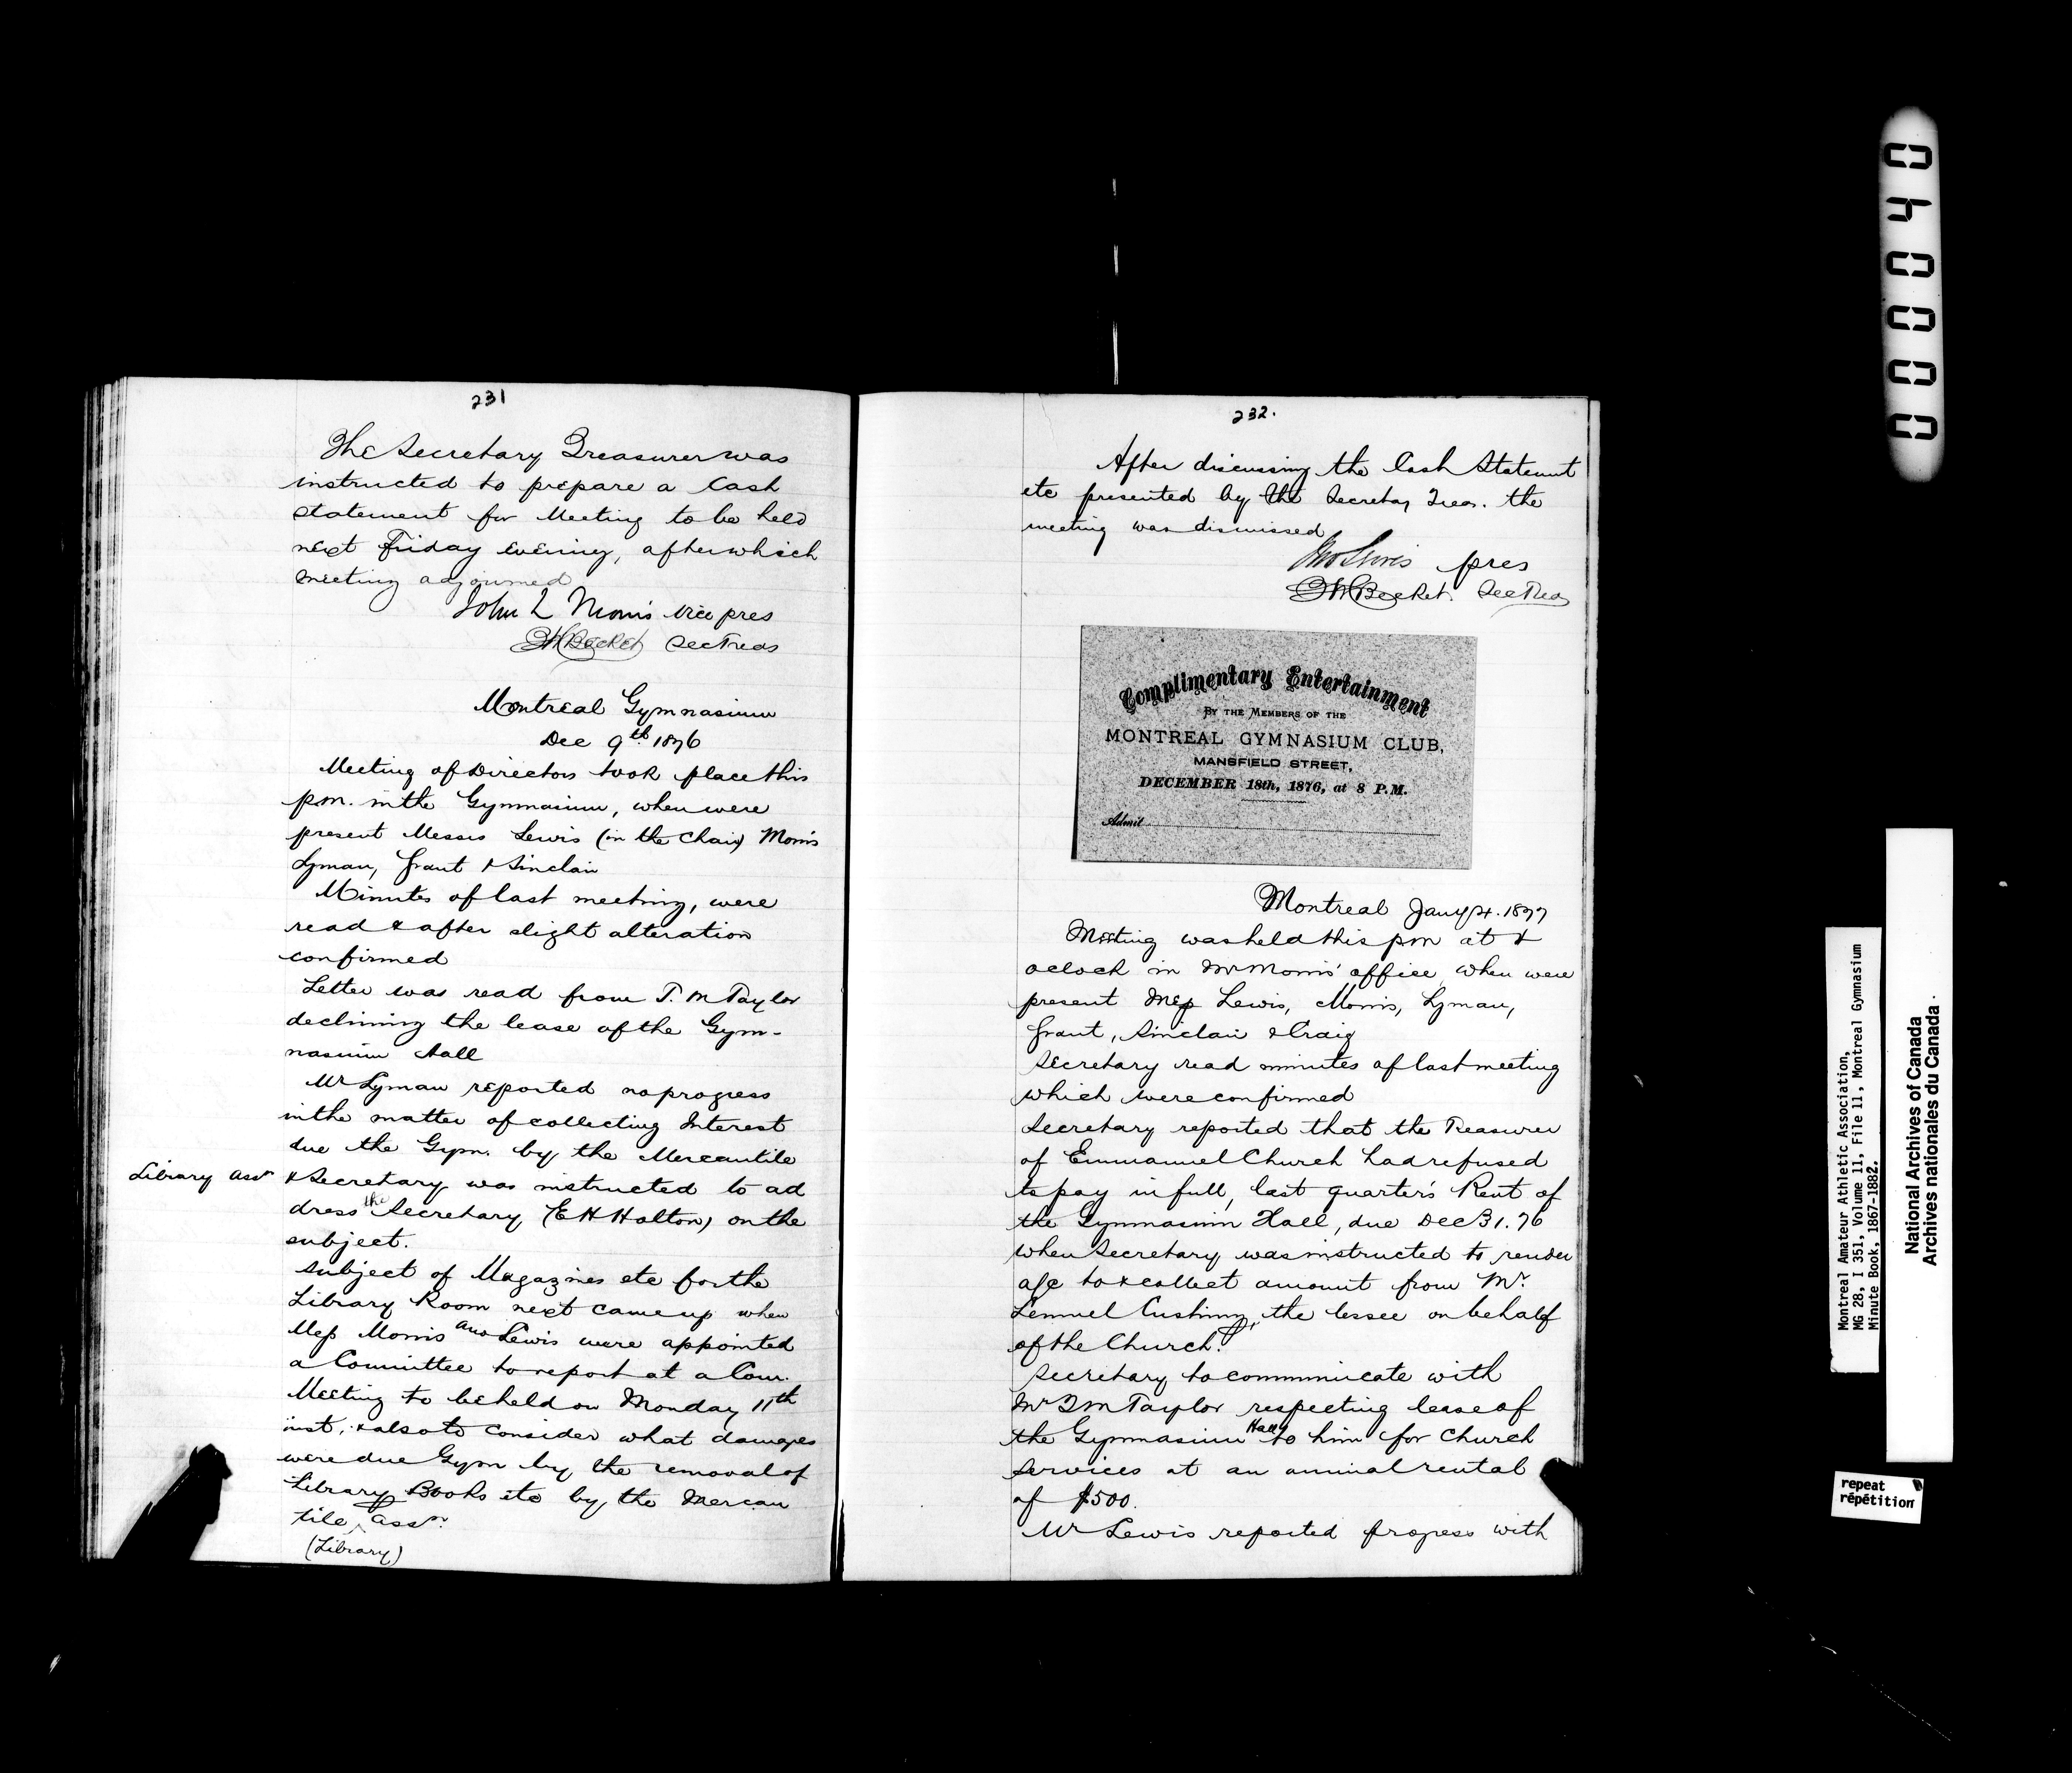 231
The Secretary Treasurer was
instructed to prepare a Cash
statement for Meeting to be held
next Friday evening, after which
meeting adjourned
John L Morris vice pres
Becket Sec Treas
Montreal Gymnasium
Dec 9th 1876
Meeting of Directors took place this
p.m. in the Gymnasium, when were
present Messrs Lewis (in the Chair) Morris
Lyman, Grant & Sinclair
Minutes of last meeting, were
read & after slight alteration
confirmed
Letter was read from T. M Taylor
declining the lease of the Gym-
nasium Hall
Mr Lyman reported no progress
in the matter of collecting Interest
due the Gym. by the Mercantile
Library Assn & Secretary was instructed to ad
dress the Secretary (E H Holton) on the
subject.
Subject of Magazines etc for the
Library Room next came up when
Mess Morris and Lewis were appointed
a Committee to report at a Com.
Meeting to be held on Monday 11th
inst, & also to consider what damages
were due Gym by the removal of
Library Books etc by the Mercan
tile Assn.
(Library)
232.
After discussing the Cash Statemnt
etc presented by the Secretary Treas. the
meeting was dismissed
Jno Lewis pres
Becket. Sec Treas
Complimentary Entertainment
BY THE MEMBERS OF THE
MONTREAL GYMNASIUM CLUB,
MANSFIELD STREET,
DECEMBER 18th, 1876, at 8 P.M.
Admit
Montreal Jany 4. 1877
Meeting was held this pm at
oclock in Mr Morris' office, when were
present Mess Lewis, Morris, Lyman,
Grant, Sinclair & Craig
Secretary read minutes of last meeting
which were confirmed
Secretary reported that the Treasurer
of Emmanuel Church had refused
to pay in full, last quarter's Rent of
the Gymnasium Hall, due Dec 31. 76
when Secretary was instructed to render
a/c to & collect amount from Mr.
Lemuel Cushing, the lessee on behalf
of the Church.
Secretary to communicate with
Mr T M Taylor respecting lease of
the Gymnasium Hall to him for Church
services at an annual rental
of $500.
Mr Lewis reported progress with
040000
Montreal Amateur Athletic Association,
MG 28, I 351, Volume 11, File 11, Montreal Gymnasium
Minute Book, 1867-1882.
National Archives of Canada
Archives nationales du Canada
repeat
répétition